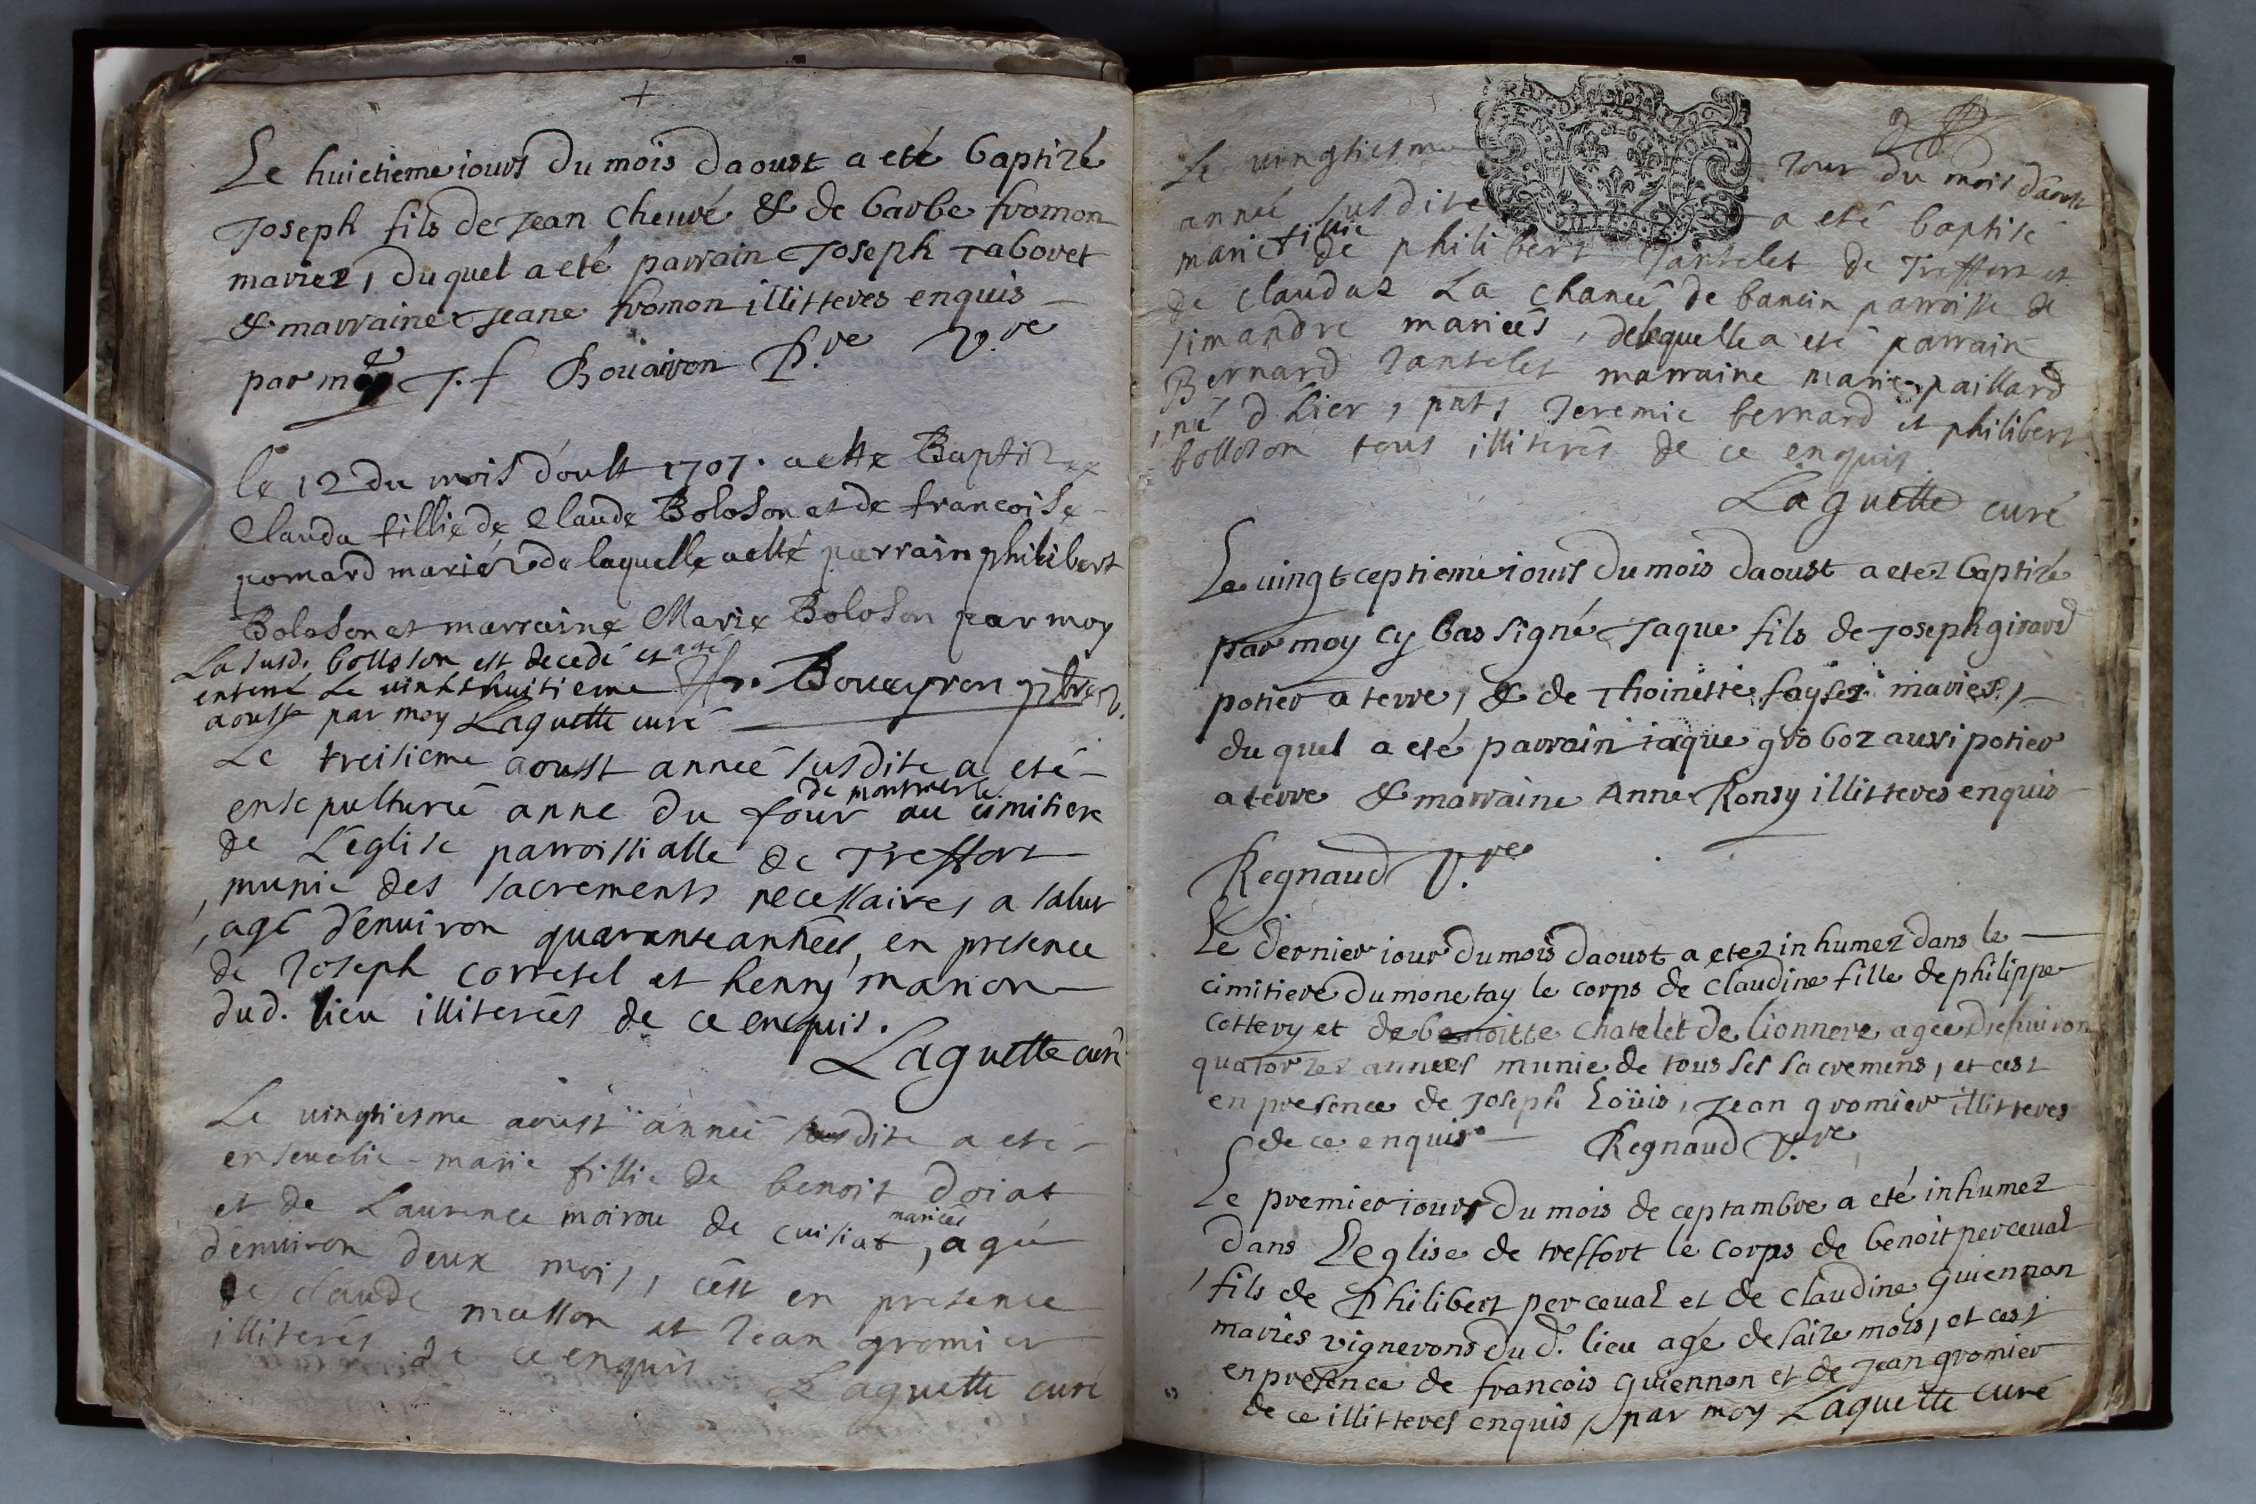 +
Le huictieme iours du mois daoust a eté baptizé
Joseph fils de Jean Chevré & de barbe fromon
mariez, du quel a eté parrain Joseph Tabovet
& marraine Jeane fromon illitteres enquis
par moy J. f Bouairon P.re V.re
le 12 du mois d'oult 1707. a etté Baptizee
Clauda fillie de Claude Boloson et de francoise
pomard mariéz de laquelle a etté parrain philibert
Boloson et marraine Marie Boloson par moy
La susd. bolloson est decedé et a eté
enterré le vint huitieme Bouayron
aoust par moy Laguette curé
Le treisieme aoust anneé susdite a eté
ensepulturé anne du four de montmerle au cimitiere
de L'eglise parroissialle de Treffort
munie des sacrements necessaires a salut
, agé d'environ quarante anneés, en presence
de Joseph corretel et henry marion
dud. lieu illitereés de ce enquis.
Laguette curé
Le vingtiesme aoust anneé susdite a eté
ensevelie marie fillie de benoit doiat
et de Laurence moirou de cuisiat mariés, agé
d'environ deux mois, c'est en presence
de claude masson et Jean gromier
illiterés de ce enquis
Laguette curé
Le vingtiesme Jour du mois d'aoust
anneé susdite a eté baptisé
marie fillie de philibert Jantelet de Treffort et
de claudaz La chaneé de bancin parroisse de
simandre marieés, delaquelle a eté parrain
Bernard Jantelet marraine marie paillard
, né d hier, pnts Jeremie bernard et philibert
bolloson tous illiterés de ce enquis
Laguette curé
Le vingt ceptieme iours du mois daoust a etez baptizé
par moy cy bas signé Jaque fils de Joseph girard
potier a terre, & de Thoinette maries,
du quel a eté parrain iaque groboz aussi potier
a terre & marraine Anne Ronzy illitteres enquis
Regnaud V.re
Le dernier iour du mois daoust a etez inhumez dans le
cimitiere du monetay le corps de Claudine fille de philippe
cottery et de benoitte Chatelet de lionnere agee d'environ
quatorzes anneés munie de tous ses sacremens, et cest
en presence de Joseph Loüis, Jean gromier illitteres
de ce enquis Regnaud V.re
Le premier iours du mois de ceptambre a eté inhumez
dans L'eglise de treffort le corps de benoit perceval
, fils de Philibert perceval et de Claudine guiennon
mariés vignerons du d. lieu agé de saize mois, et cest
en presence de francois guiennon et de Jean gromier
de ce illitteres enquis, par moy Laguette curé